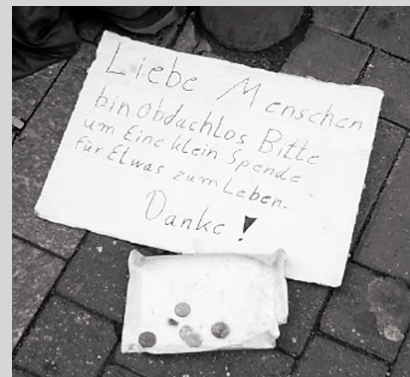 Liebe Menschen
bin obdachlos Bitte
um Eine klein Spende
für Etwas zum Leben.
Danke!